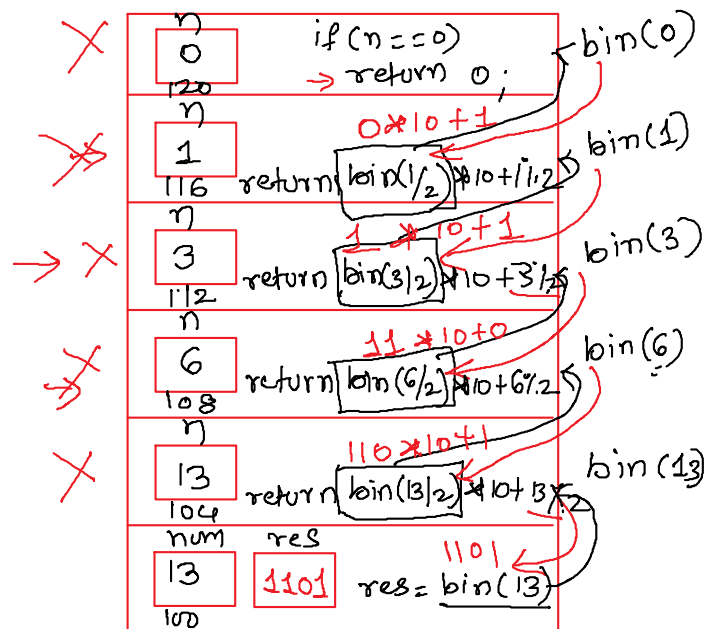 n
0
120
if (n==0)
→ return 0;
bin(0)
n
1
116
0*10+1
return bin(1/2)*10+1%2
bin(1)
n
3
112
1 * 10+1
return bin(3/2)*10+3%2
bin(3)
n
6
108
11*10+0
return bin(6/2)*10+6%2
bin(6)
n
13
104
110*10+1
return bin(13/2)*10+13%2
bin(13)
num
13
100
res
1101
1101
res= bin(13)